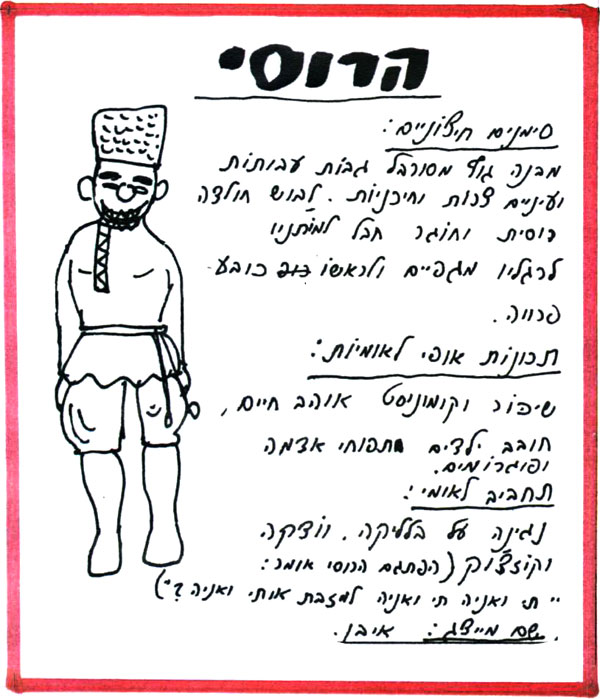 הרוסי
סימנים חיצוניים:
מבנה גוף מסורבל גבות עבותות
ועיניים צרות וחיכניות. לבוש חולצה
רוסית וחוגר חבל למותניו
לרגליו מגפיים ולראשו כובע
פרווה.
תכונות אופי לאומיות:
שיכור וקומוניסט אוהב חיים,
חובב ילדים תפוחי אדמה
ופוגרומים.
תחביב לאומי:
נגינה על בלליקה. וודקה
וקוזצוק (הפתגם הרוסי אומר:
"תי ואניה תי ואניה למזבת אותי ואניה?")
שם מייצג: איבן.